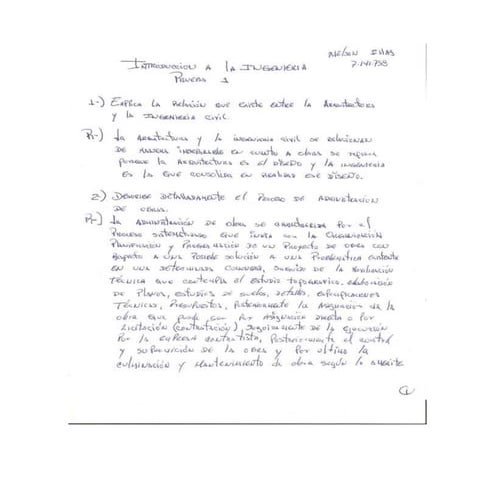 Nelson
7.141.753
Introduccion a la Ingenieria
Prueba 1
1-) Explica la Relación que existe entre la Arquitectura
y la Ingenieria civil.
R-) La Arquitectura y la ingenieria civil se relacionan
de manera en cuanto a obras se refiere
porque la Arquitectura es el diseño y la ingenieria
es la que consolida en Realidad ese Diseño.
2) Describe Detalladamente el Proceso de Administracion
de obras.
R-) La Administración de obra se caracteriza por el
Proceso sistematizado que inicia con la Organización
Planificación y Programación de un Proyecto de obra con
Respecto a una Posible solución a una Problemática existente
en una determinada comunidad, seguido de la Evaluación
Técnica que contempla el estudio topografico, elaboración
de Planos, estudios de suelos, detalles, especificaciones
Técnicas, Presupuestos, Posteriormente la Asignacion de la
obra que puede ser por Asignación directa o por
Licitación (contratación), seguidamente de la ejecución
Por la empresa contratista, Posteriormente el control
y supervición de la obra y por ultimo la
culminación y mantenimiento de obra según la
1